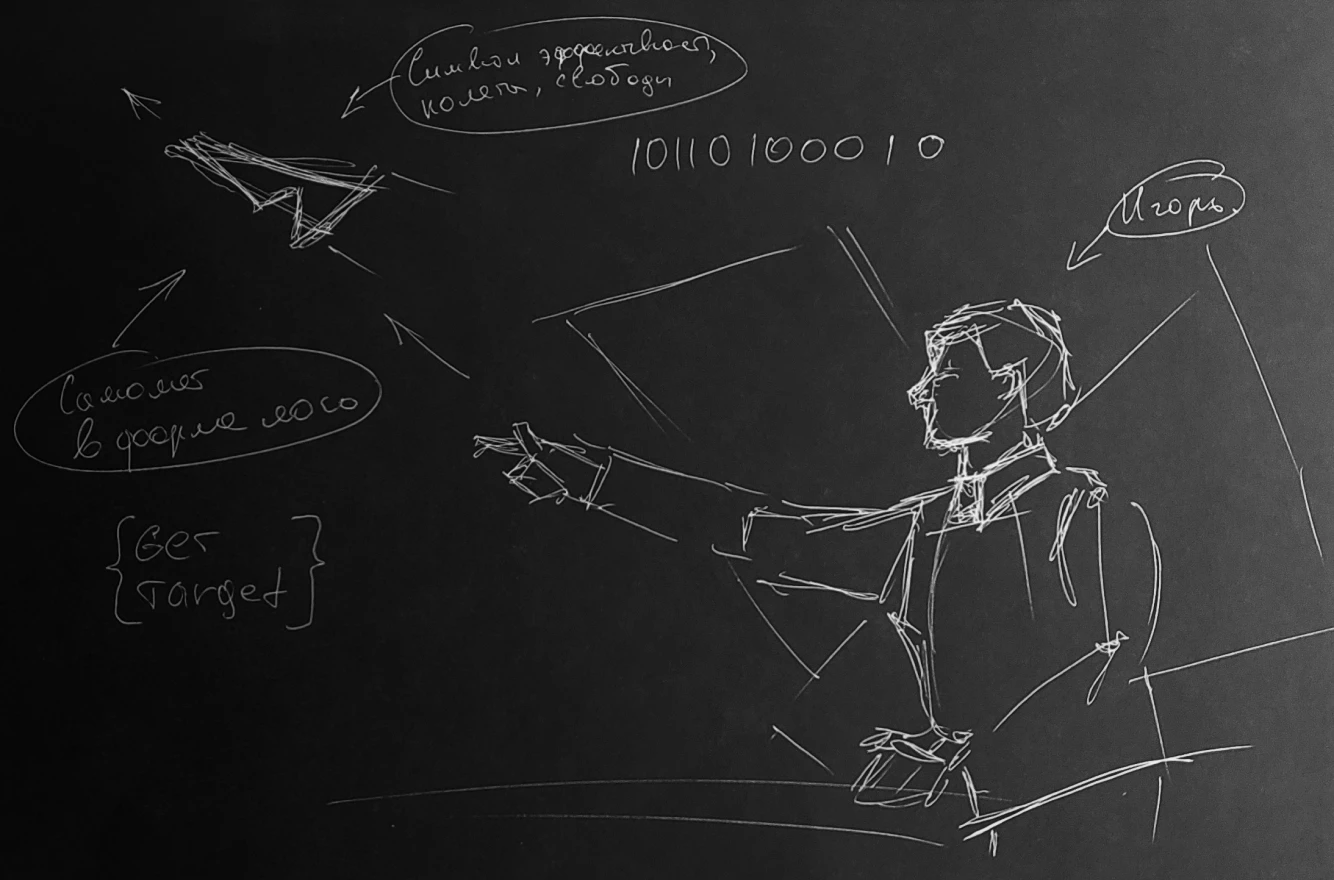 Символ эффективност,
полета, свободы
101101000010
Игорь
Самолет
в форме лого
{Get
Target}